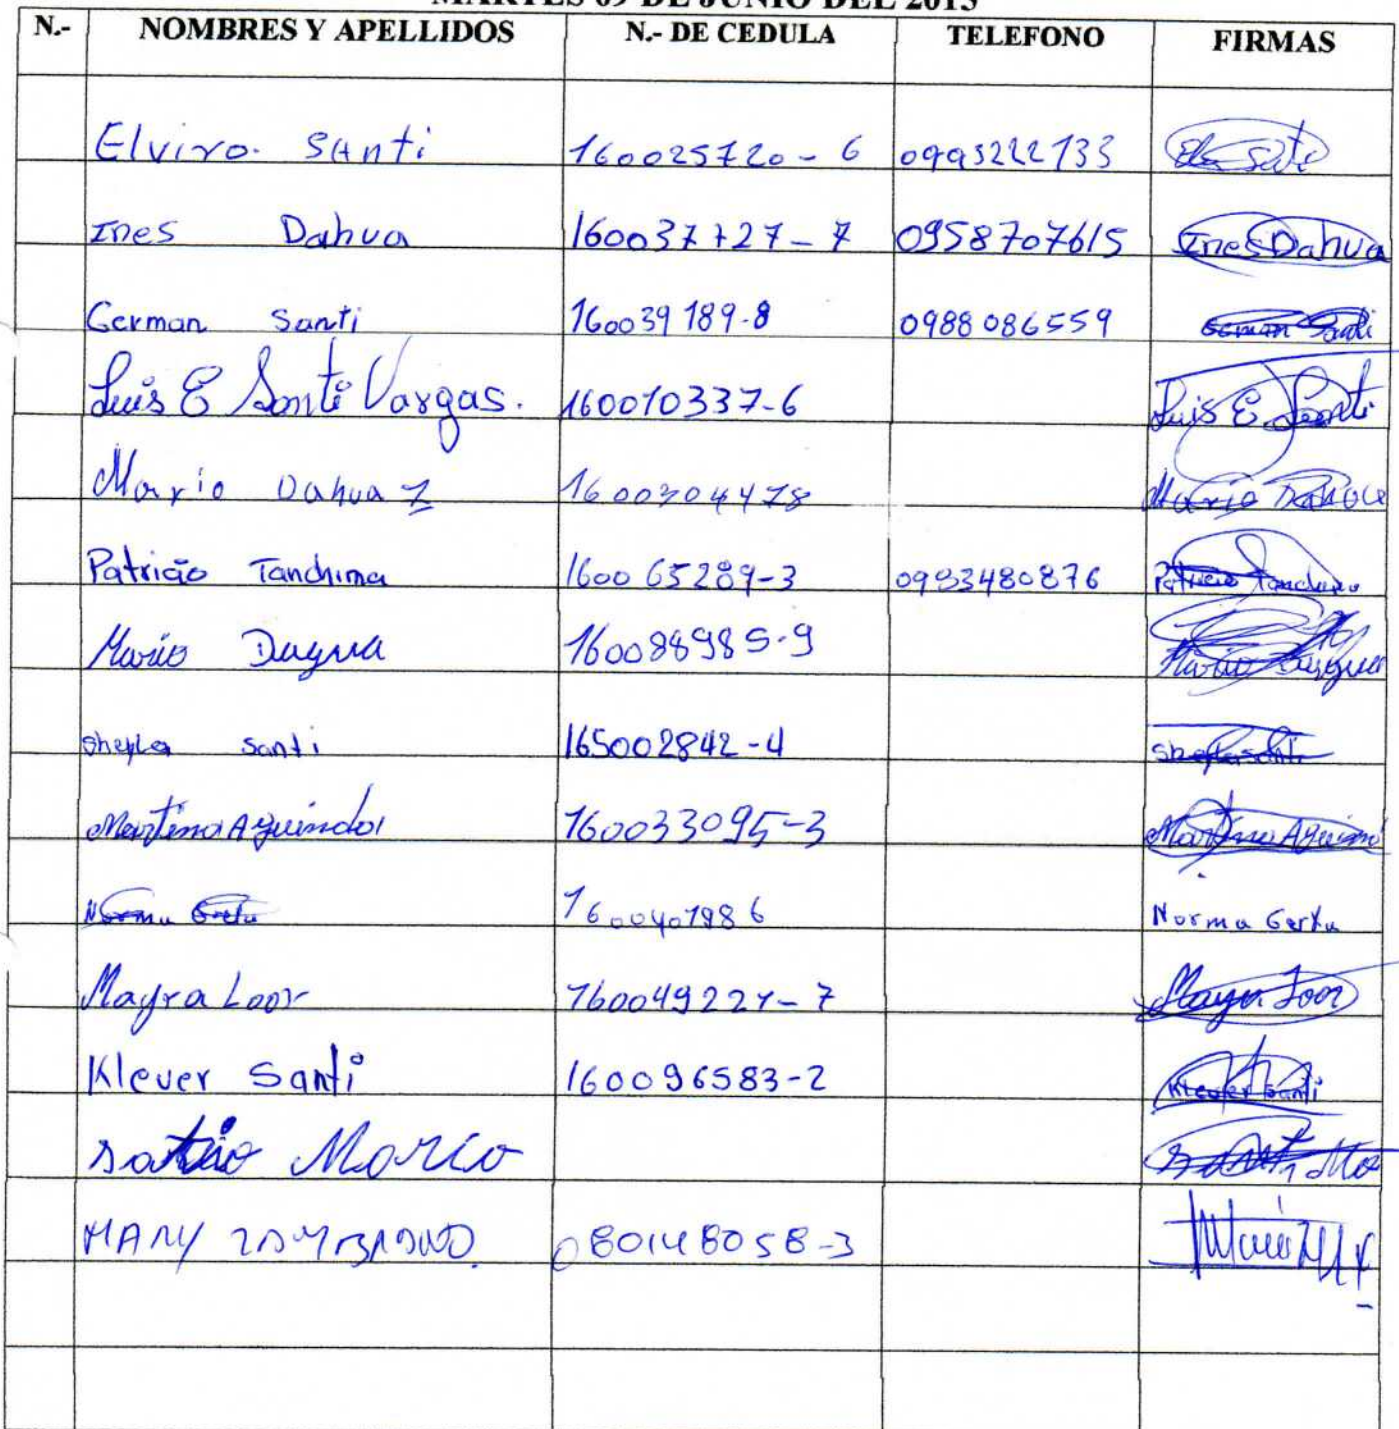 MARTES 09 DE JUNIO DEL 2015
N.- NOMBRES Y APELLIDOS N.- DE CEDULA TELEFONO FIRMAS
Elviro. Santi 160025720-6
Ines Dahua 160037727-7 0958707615 Ines Dahua
German Santi 160039189-8 0988086559 German Santi
Luis E Santi Vargas. 160010337-6 Luis E. Santi
Mario Dahua Z Mario
Patricio Tanchima 160065289-3 0983480876 Patricio
Mario Dagua 160088985-9 Mario
Sheyla Santi 165002842-4 Sheyla Santi
Martina Aguinda 160033095-3 Martina
Norma 1600401986 Norma
Mayra Loor 160049221-7 Mayra Loor
Klever Santi 160096583-2 Klever Santi
Marco Santi
MARY ZAMBRANO. 080148058-3